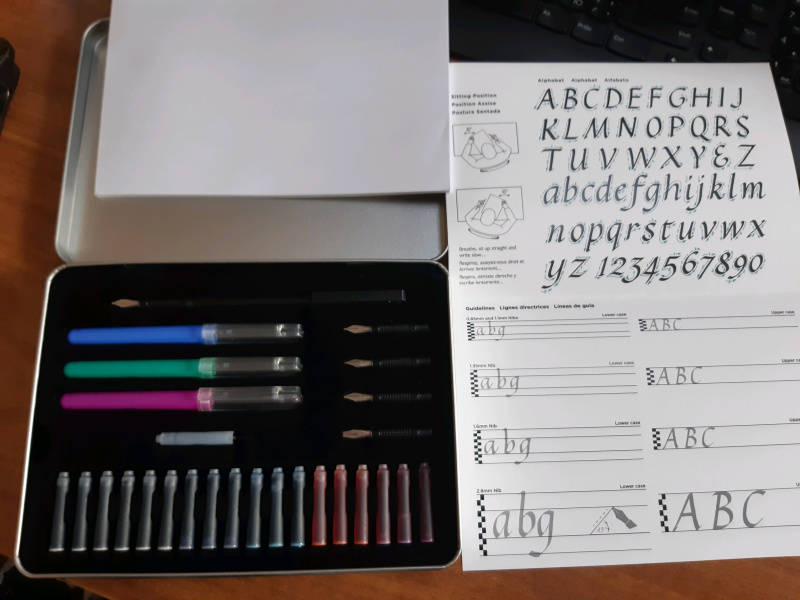 Alphabet Alphabet Alfabeto
Sitting Position
Position Assise
Postura Sentada
ABCDEFGHIJ
KLMNOPQRS
TUVWXY&Z
abcdefghijklm
nopqrstuvwx
yz 1234567890
Breathe, sit up straight and
write slow...
Respirez, asseyez-vous droit et
écrivez lentement...
Respire, siéntate derecho y
escribe lentamente...
Guidelines Lignes directrices Líneas de guía
0.85mm and 1.1mm Nibs Lower case
abg
Upper case
ABC
Lower case
abg
Upper case
ABC
1.6mm Nib Lower case
abg
Upper
ABC
2.8mm Nib Lower case
abg
45°
ABC